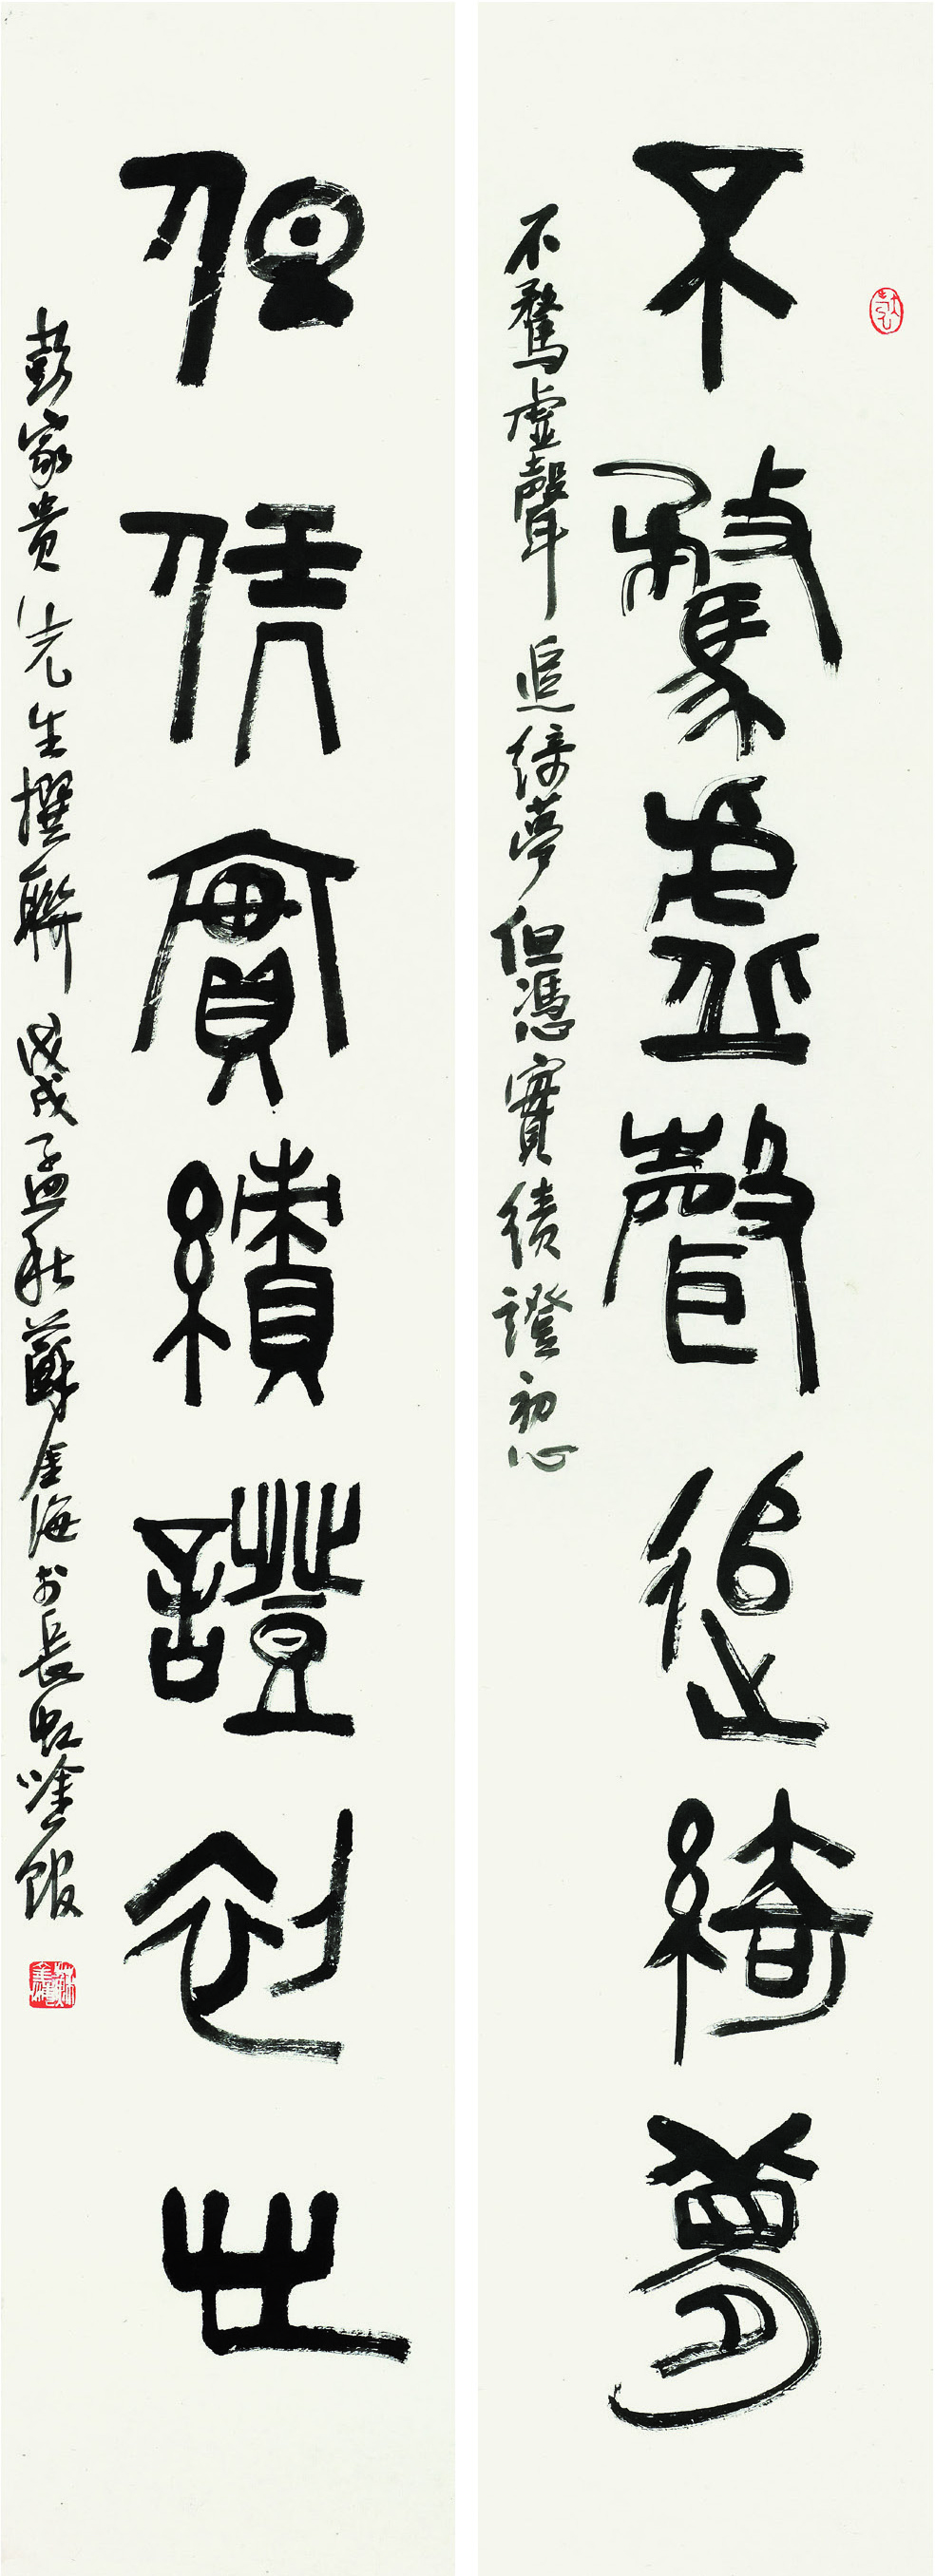 不騖虛聲追綺夢
不騖虛聲追綺夢但憑實績證初心
但凭實績證初心
彭家贵先生撰聯 戊戌孟秋蘇金海於長虹唫館